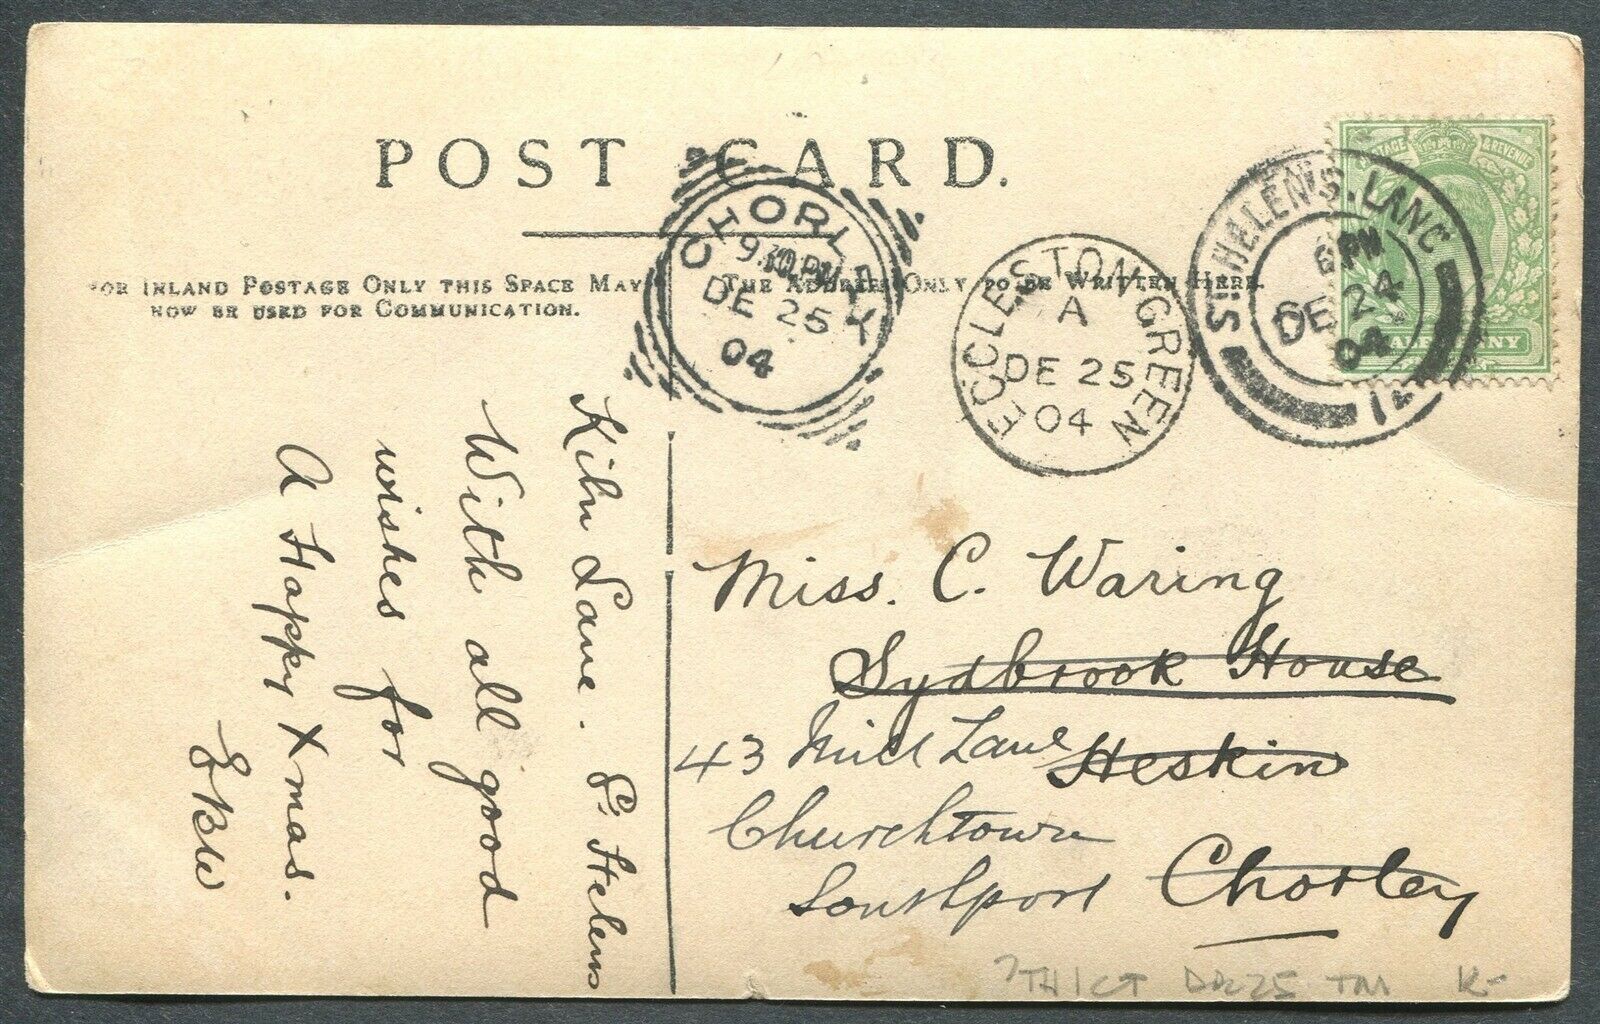 POST CARD.
FOR INLAND POSTAGE ONLY THIS SPACE MAY
NOW BE USED FOR COMMUNICATION.
THE ADDRESS ONLY TO BE WRITTEN HERE.
CHORLEY
9.30 PM
DE 25
04
ECCLESTON GREEN
A
DE 25
04
ST HELENS. LANC
6 PM
DE 24
04
POSTAGE & REVENUE
HALFPENNY
Kiln Lane. St Helens
With all good
wishes for
A Happy Xmas.
EBW
Miss. C. Waring
Sydbrook House
43 Mill Lane Heskin
Churchtown
Southport Chorley
DE 25